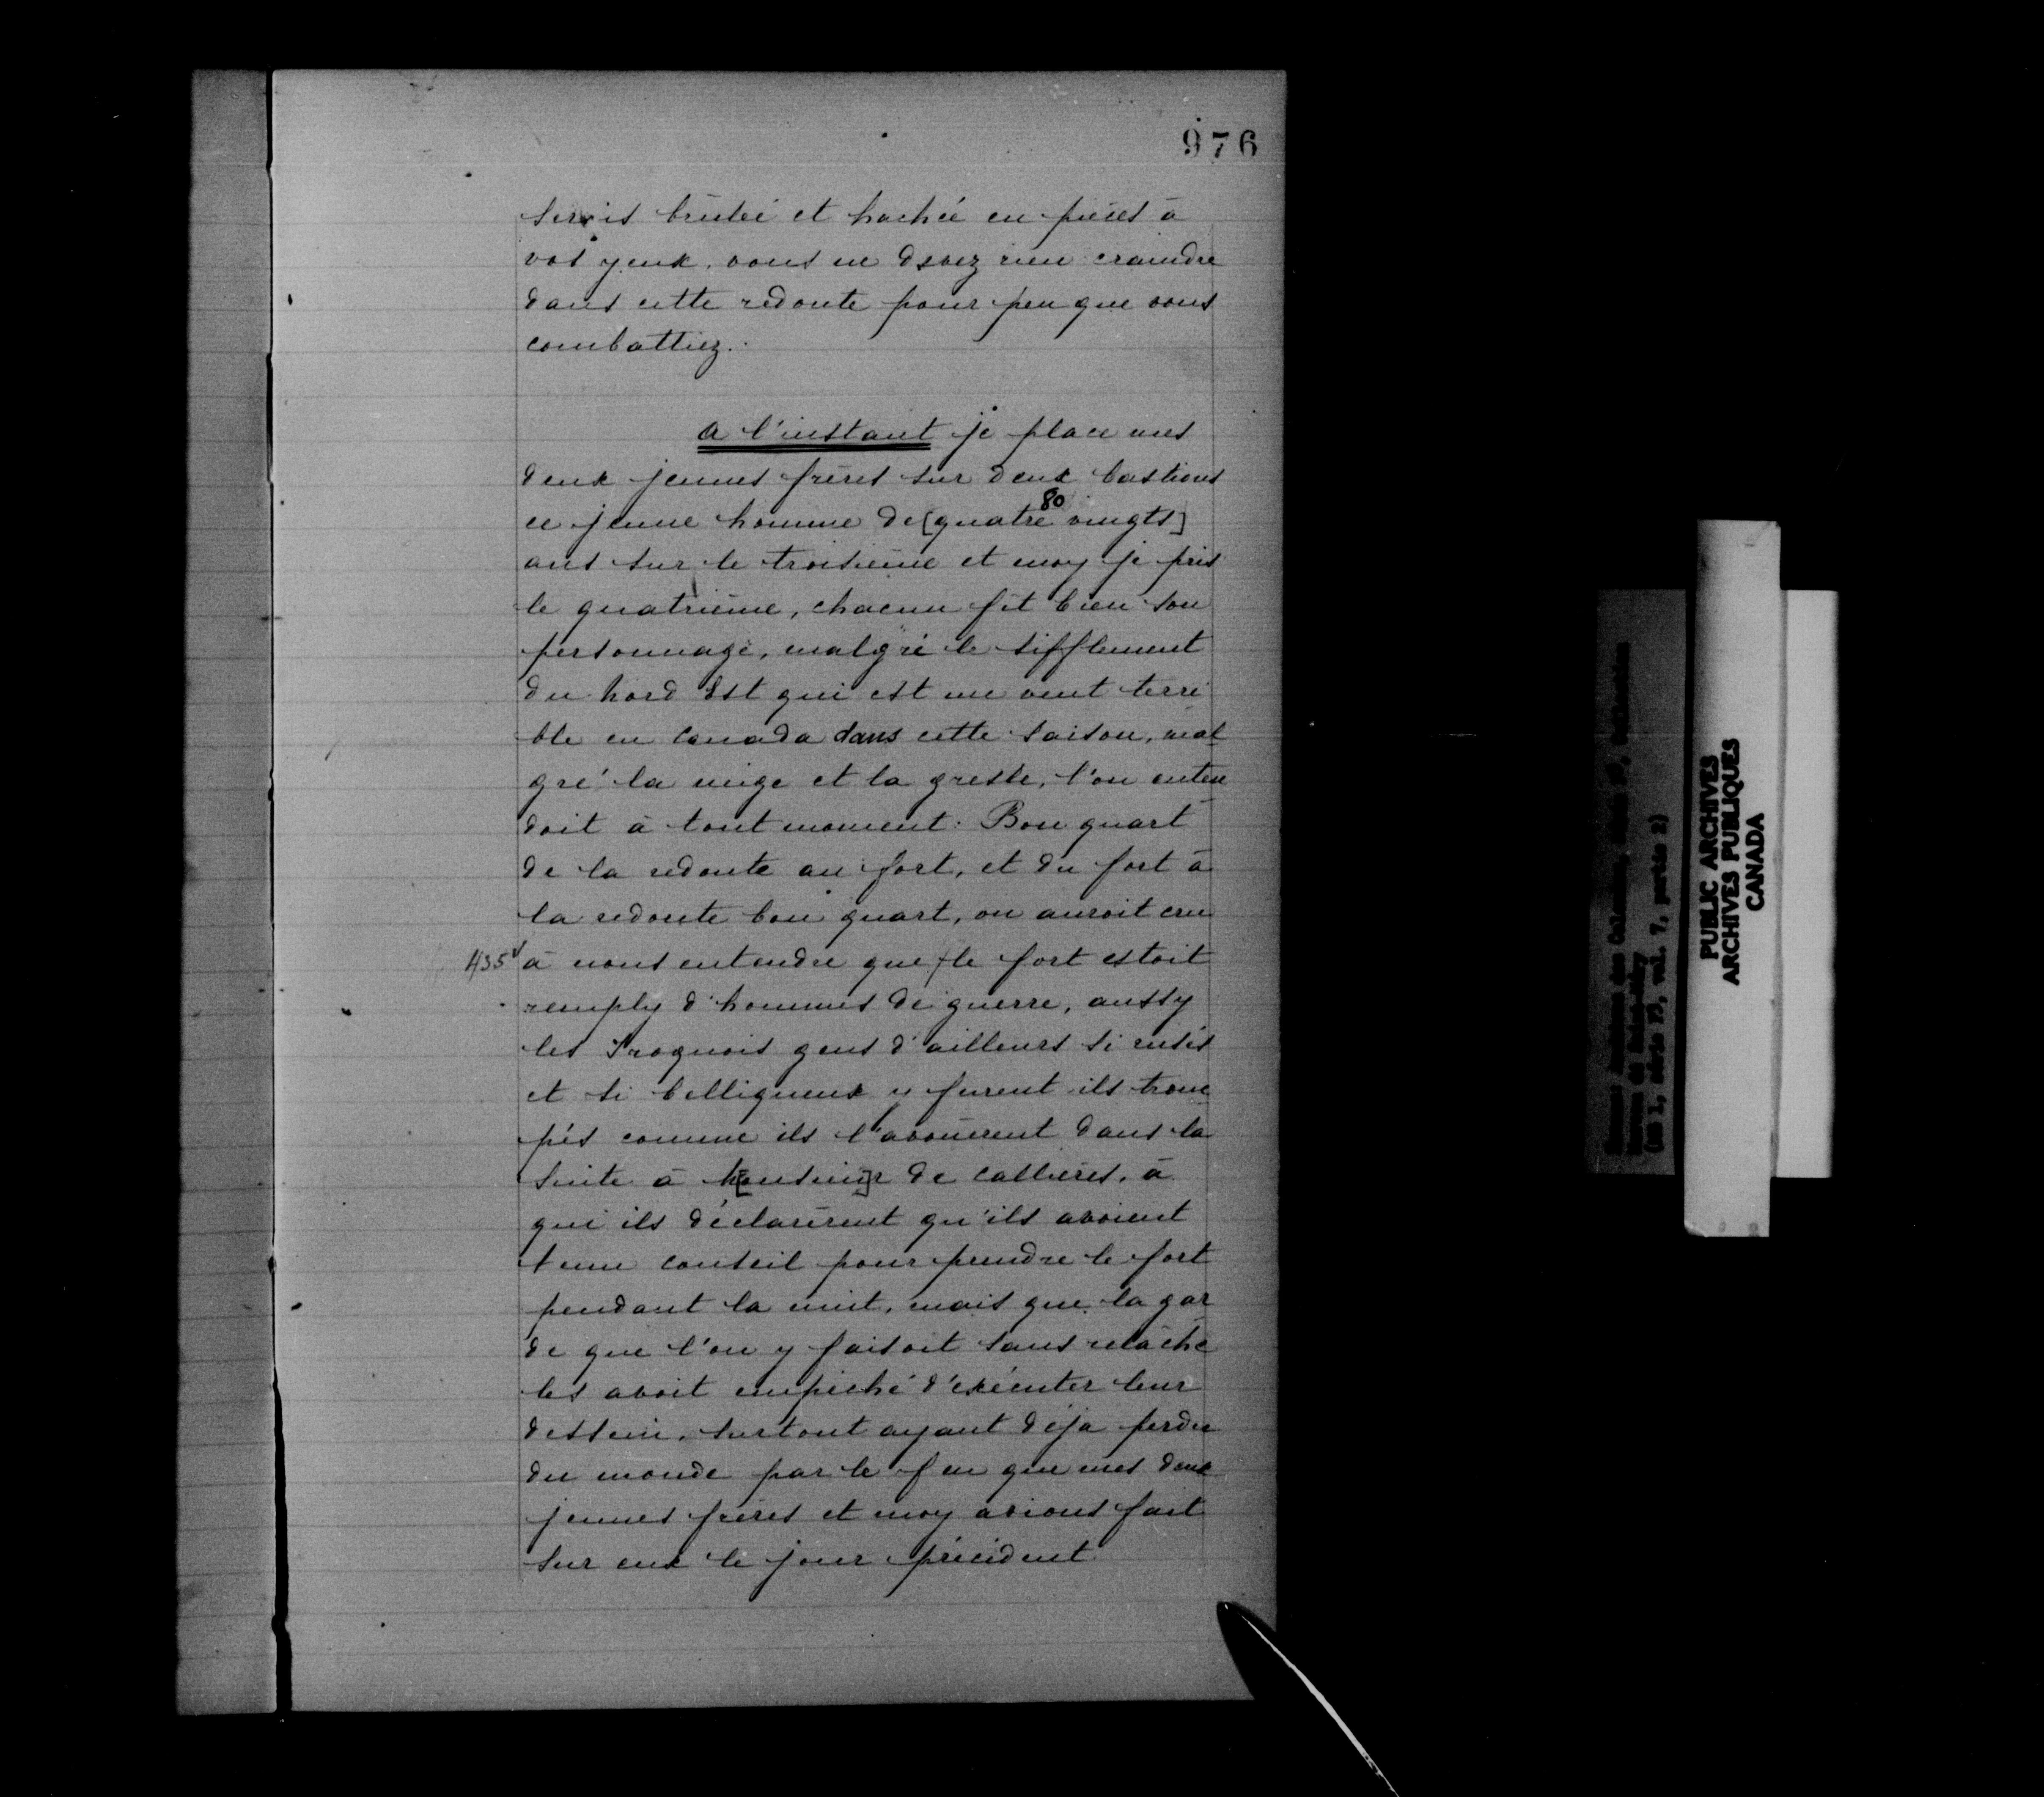 976
serois bruslée et hachée en pièces à
vos yeux. vous ne devez rien craindre
dans cette redoute pour peu que vous
combattiez.
a l'instant je place mes
deux jeunes frères sur deux bastions
ce jeune homme de [quatre vingts]
80
ans sur le troisième et moy je pris
le quatrième, chacun fit bien son
personnage, malgré le sifflement
du nord Est qui est un vent terri
ble en Canada dans cette saison, mal
gré la neige et la gresle, l'on enten
doit à tout moment: Bon quart
de la redoute au fort, et du fort à
la redoute bon quart, on auroit cru
435 à nous entendre que le fort estoit
remply d'hommes de guerre, aussy
les Iroquois gens d'ailleurs si rusés
et si belliqueux y furent ils trom
pés comme ils l'avouèrent dans la
suite à M[onsieu]r de Callières, à
qui ils déclarèrent qu'ils avoient
tenu conseil pour prendre le fort
pendant la nuit, mais que la gar
de que l'on y faisoit sans relâche
les avoit empêché d'exécuter leur
dessein, surtout ayant déja perdu
du monde par le feu que mes deux
jeunes frères et moy avions fait
sur eux le jour précédent
PUBLIC ARCHIVES
ARCHIVES PUBLIQUES
CANADA
(MG 1, série F3, vol. 7, partie 2)